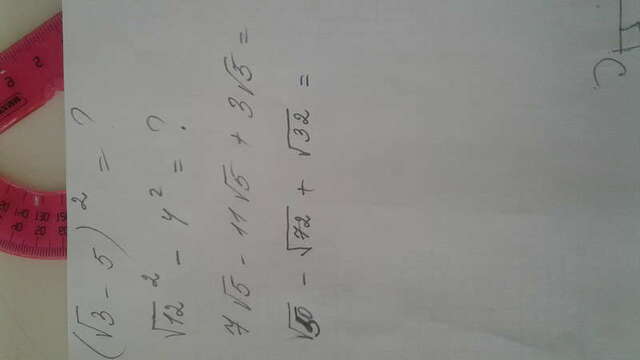 (√3 - 5)² = ?
√12² - 4² = ?
7√5 - 11√5 + 3√5 =
- √72 + √32 =